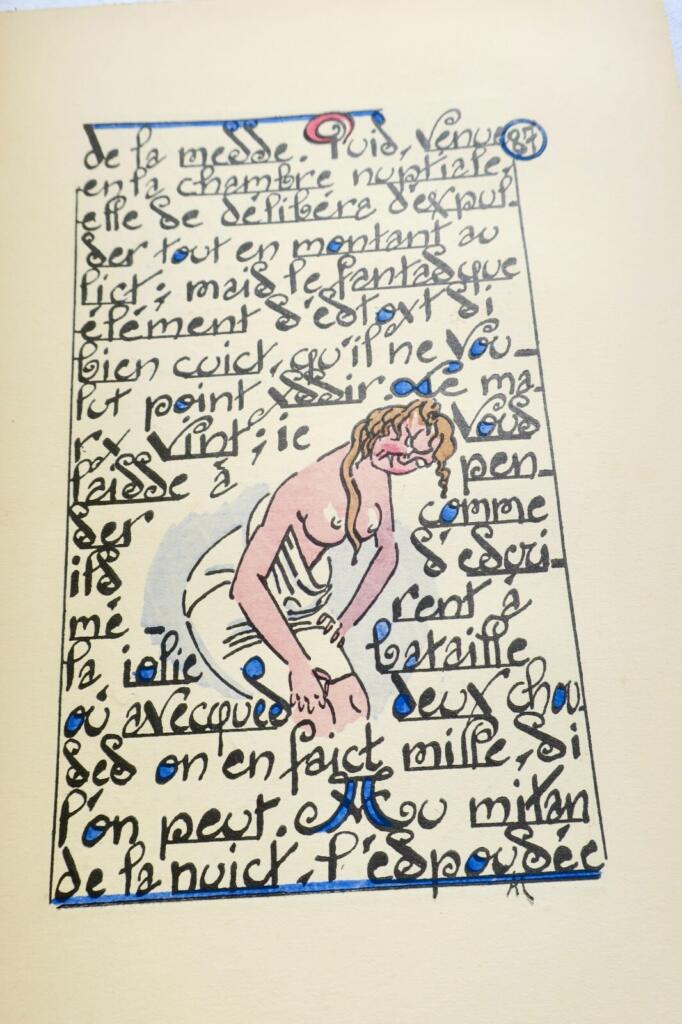 de la messe. Puis, venue
87
en la chambre nuptiale,
elle se délibéra d'expul-
ser tout en montant au
lict; mais le fantasque
élément s'estoyt si
bien cuict, qu'il ne vou-
lut point yssir. Le ma-
ry vint; ie vous
laisse à pen-
ser comme
ils s'escri-
mé- rent à
la iolie bataille
où avecques deux chou-
ses on en faict mille, si
l'on peut. Au mitan
de la nuict, l'espousée